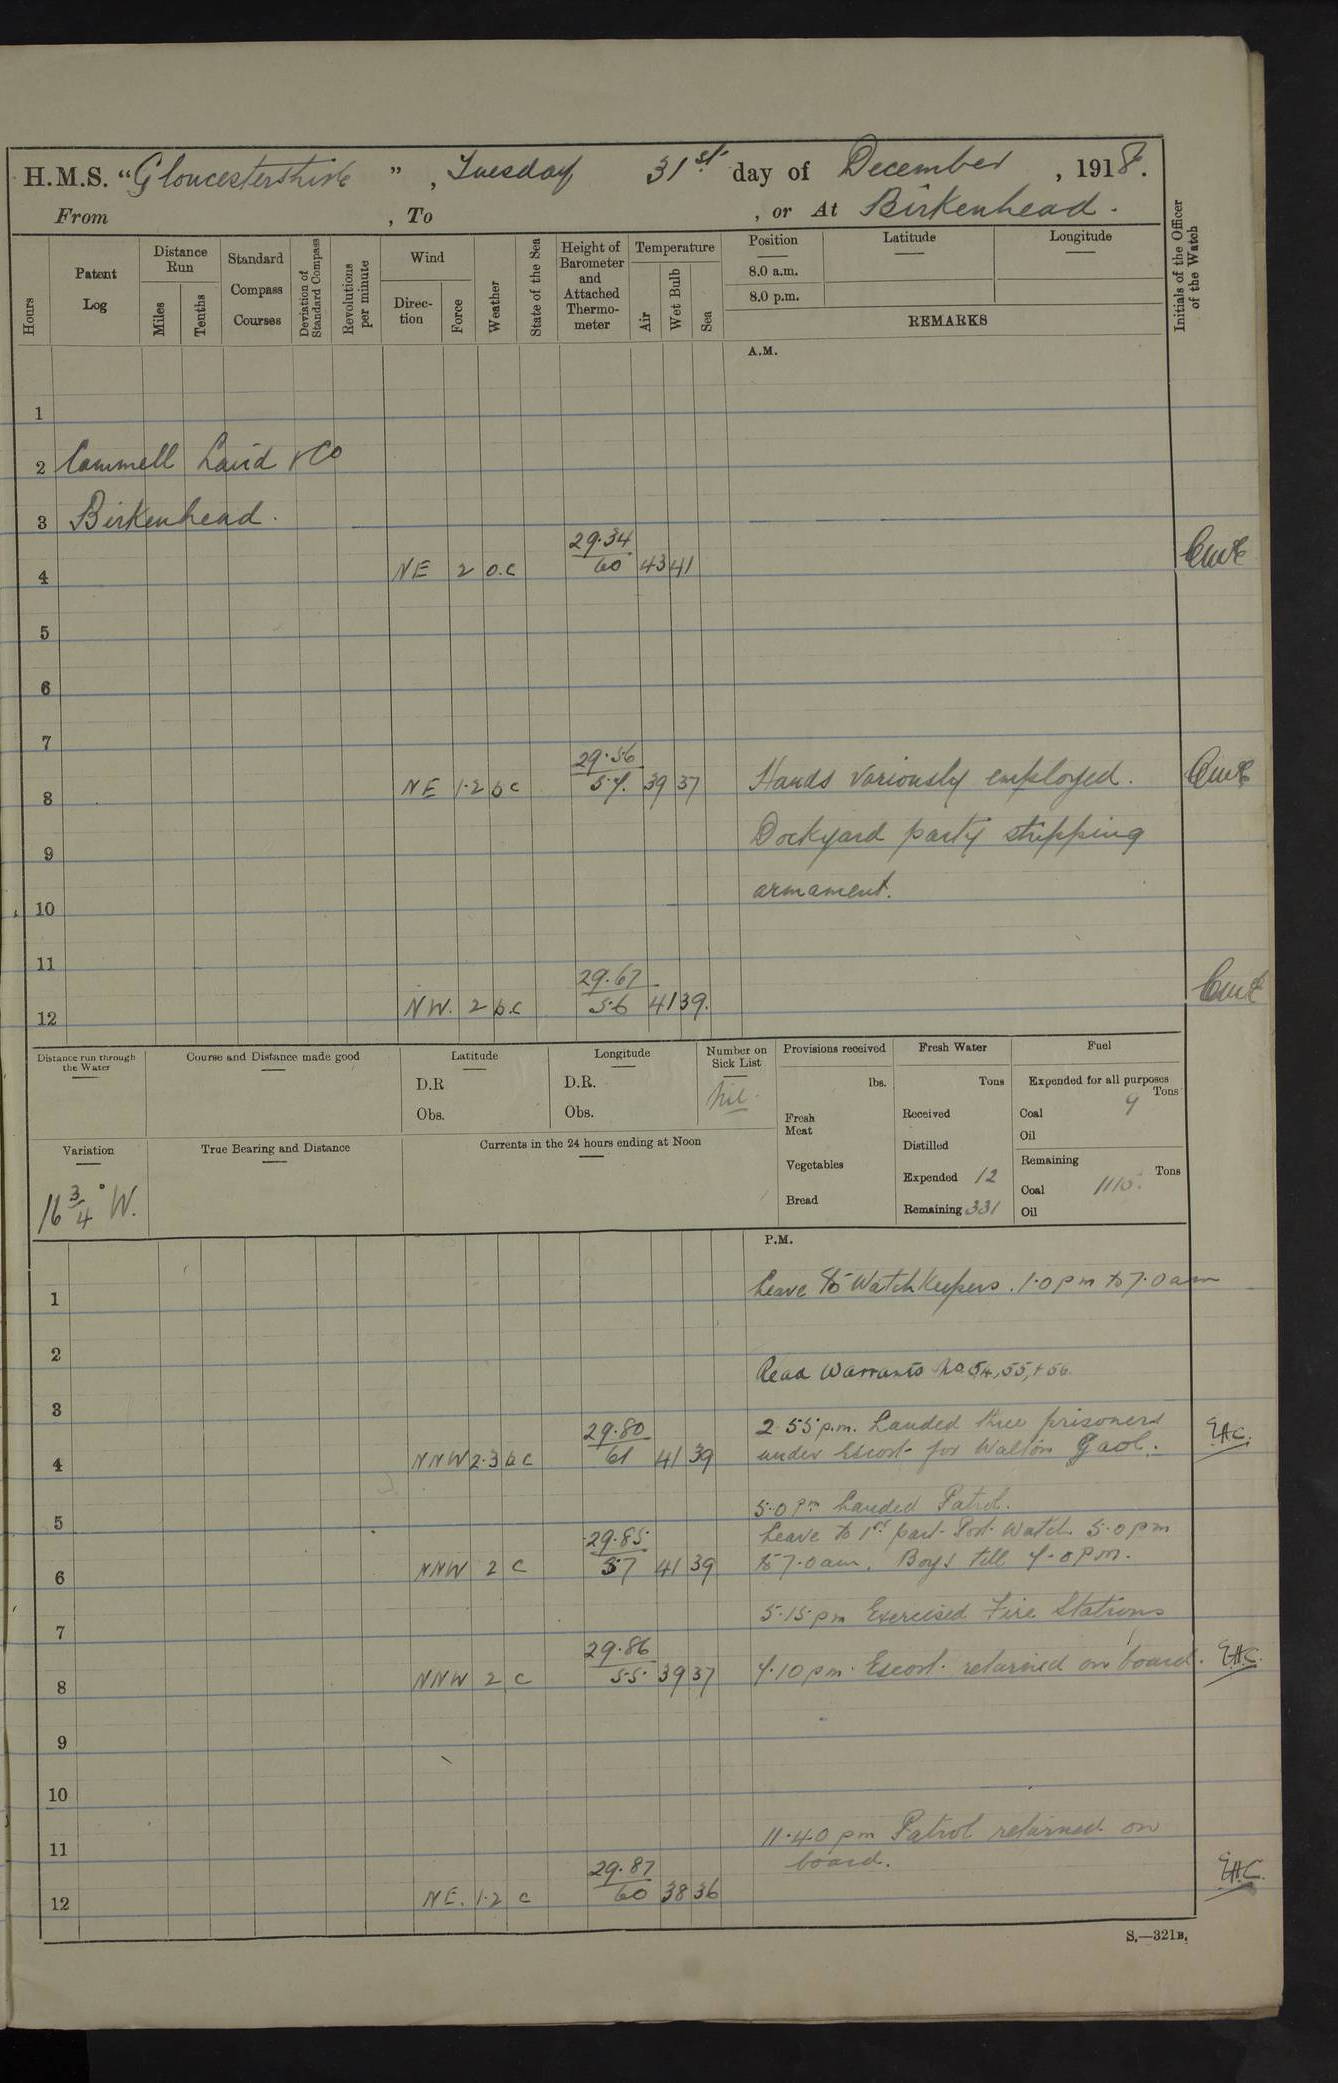 H.M.S. “Gloucestershire” , Tuesday 31st day of December , 1918.
From , To , or At Birkenhead.
Hours
Patent Log
Distance Run
Miles
Tenths
Standard Compass Courses
Deviation of Standard Compass
Revolutions per minute
Wind
Direction
Force
Weather
State of the Sea
Height of Barometer and Attached Thermometer
Temperature
Air
Wet Bulb
Sea
Position
8.0 a.m.
8.0 p.m.
Latitude
Longitude
REMARKS
Initials of the Officer of the Watch
A.M.
1
2 Cammell Laird & Co
3 Birkenhead.
29.34
4 NE 2 o.c 60 43 41
5
6
7
29.56
8 NE 1.2 b c 57. 39 37 Hands variously employed.
9 Dockyard party stripping
10 armament.
11
29.67
12 NW. 2 b.c 56 41 39.
Distance run through the Water
Course and Distance made good
Latitude
D.R
Obs.
Longitude
D.R.
Obs.
Number on Sick List
Nil.
Provisions received
lbs.
Fresh Meat
Vegetables
Bread
Fresh Water
Tons
Received
Distilled
Expended 12
Remaining 331
Fuel
Expended for all purposes
Tons
Coal 9
Oil
Remaining
Tons
Coal
Oil
Variation
16 3/4° W.
True Bearing and Distance
Currents in the 24 hours ending at Noon
P.M.
1 Leave to Watchkeepers. 1.0 pm to 7.0 am
2 Read Warrants No 54, 55, + 56.
3
29.80 2.55 p.m. Landed three prisoners
4 NNW 2.3 b c 61 41 39 under Escort for Walton Gaol. E.A.C.
5 5.0 pm Landed Patrol.
29.85 Leave to 1st part Port Watch 5.0 pm
6 NNW 2 c 57 41 39 to 7.0 am. Boys till 9.0 pm.
7 5.15 pm Exercised Fire Stations
29.86
8 NNW 2 c 55. 39 37 9.10 pm. Escort returned on board. E.A.C.
9
10
11 11.40 pm Patrol returned on
29.87 board.
12 NE. 1.2 c 60 38 36 E.A.C.
S.—321B.